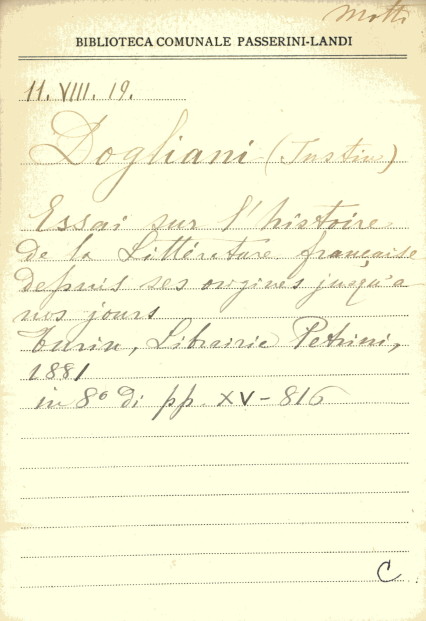 Motti
BIBLIOTECA COMUNALE PASSERINI-LANDI
11. VIII. 19.
Dogliani (Justin)
Essai sur l'histoire
de la Littérature française
depuis ses origines jusqu'a
nos jours
Turin, Librairie Petrini,
1881
in 8º di pp. XV-816
C